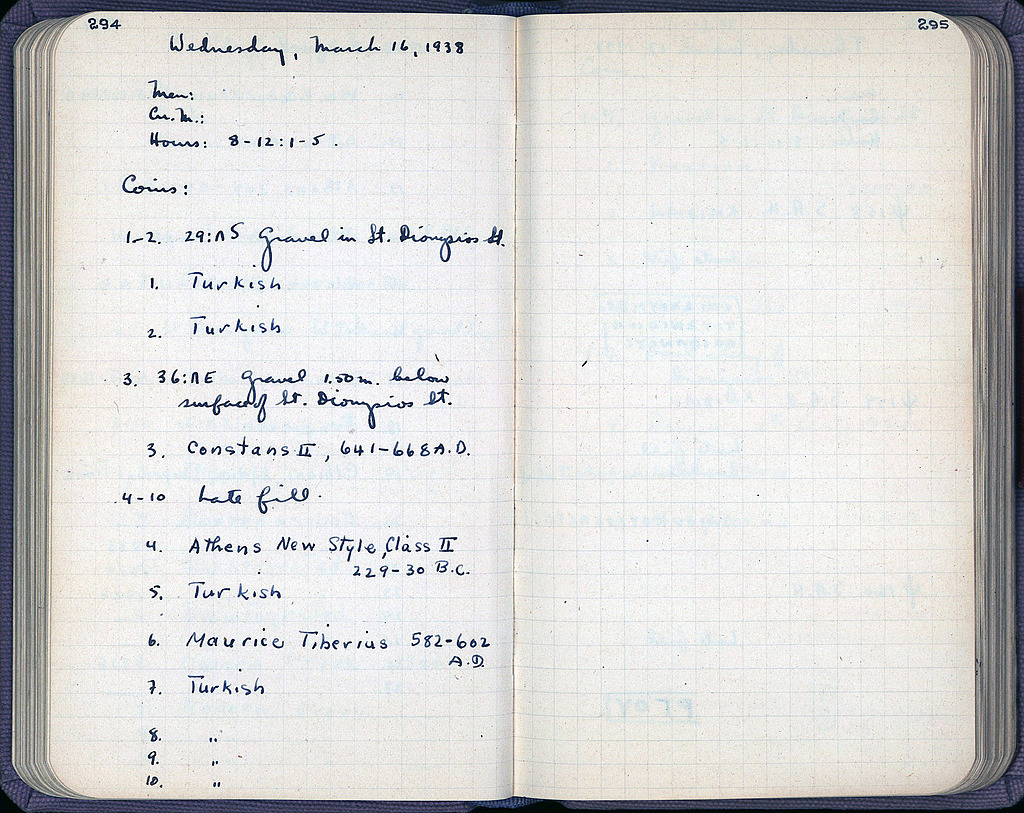 294
Wednesday, March 16, 1938
Men:
Cu. M.:
Hours: 8-12:1-5.
Coins:
1-2. 29:ΛS Gravel in St. Dionysios St.
1. Turkish
2. Turkish
3. 36:ΛE Gravel 1.50m. below
surface of St. Dionysios St.
3. Constans II, 641-668 A.D.
4-10 Late fill.
4. Athens New Style, Class II
229-30 B.C.
5. Turkish
6. Maurice Tiberius 582-602
A.D.
7. Turkish
8. "
9. "
10. "
295